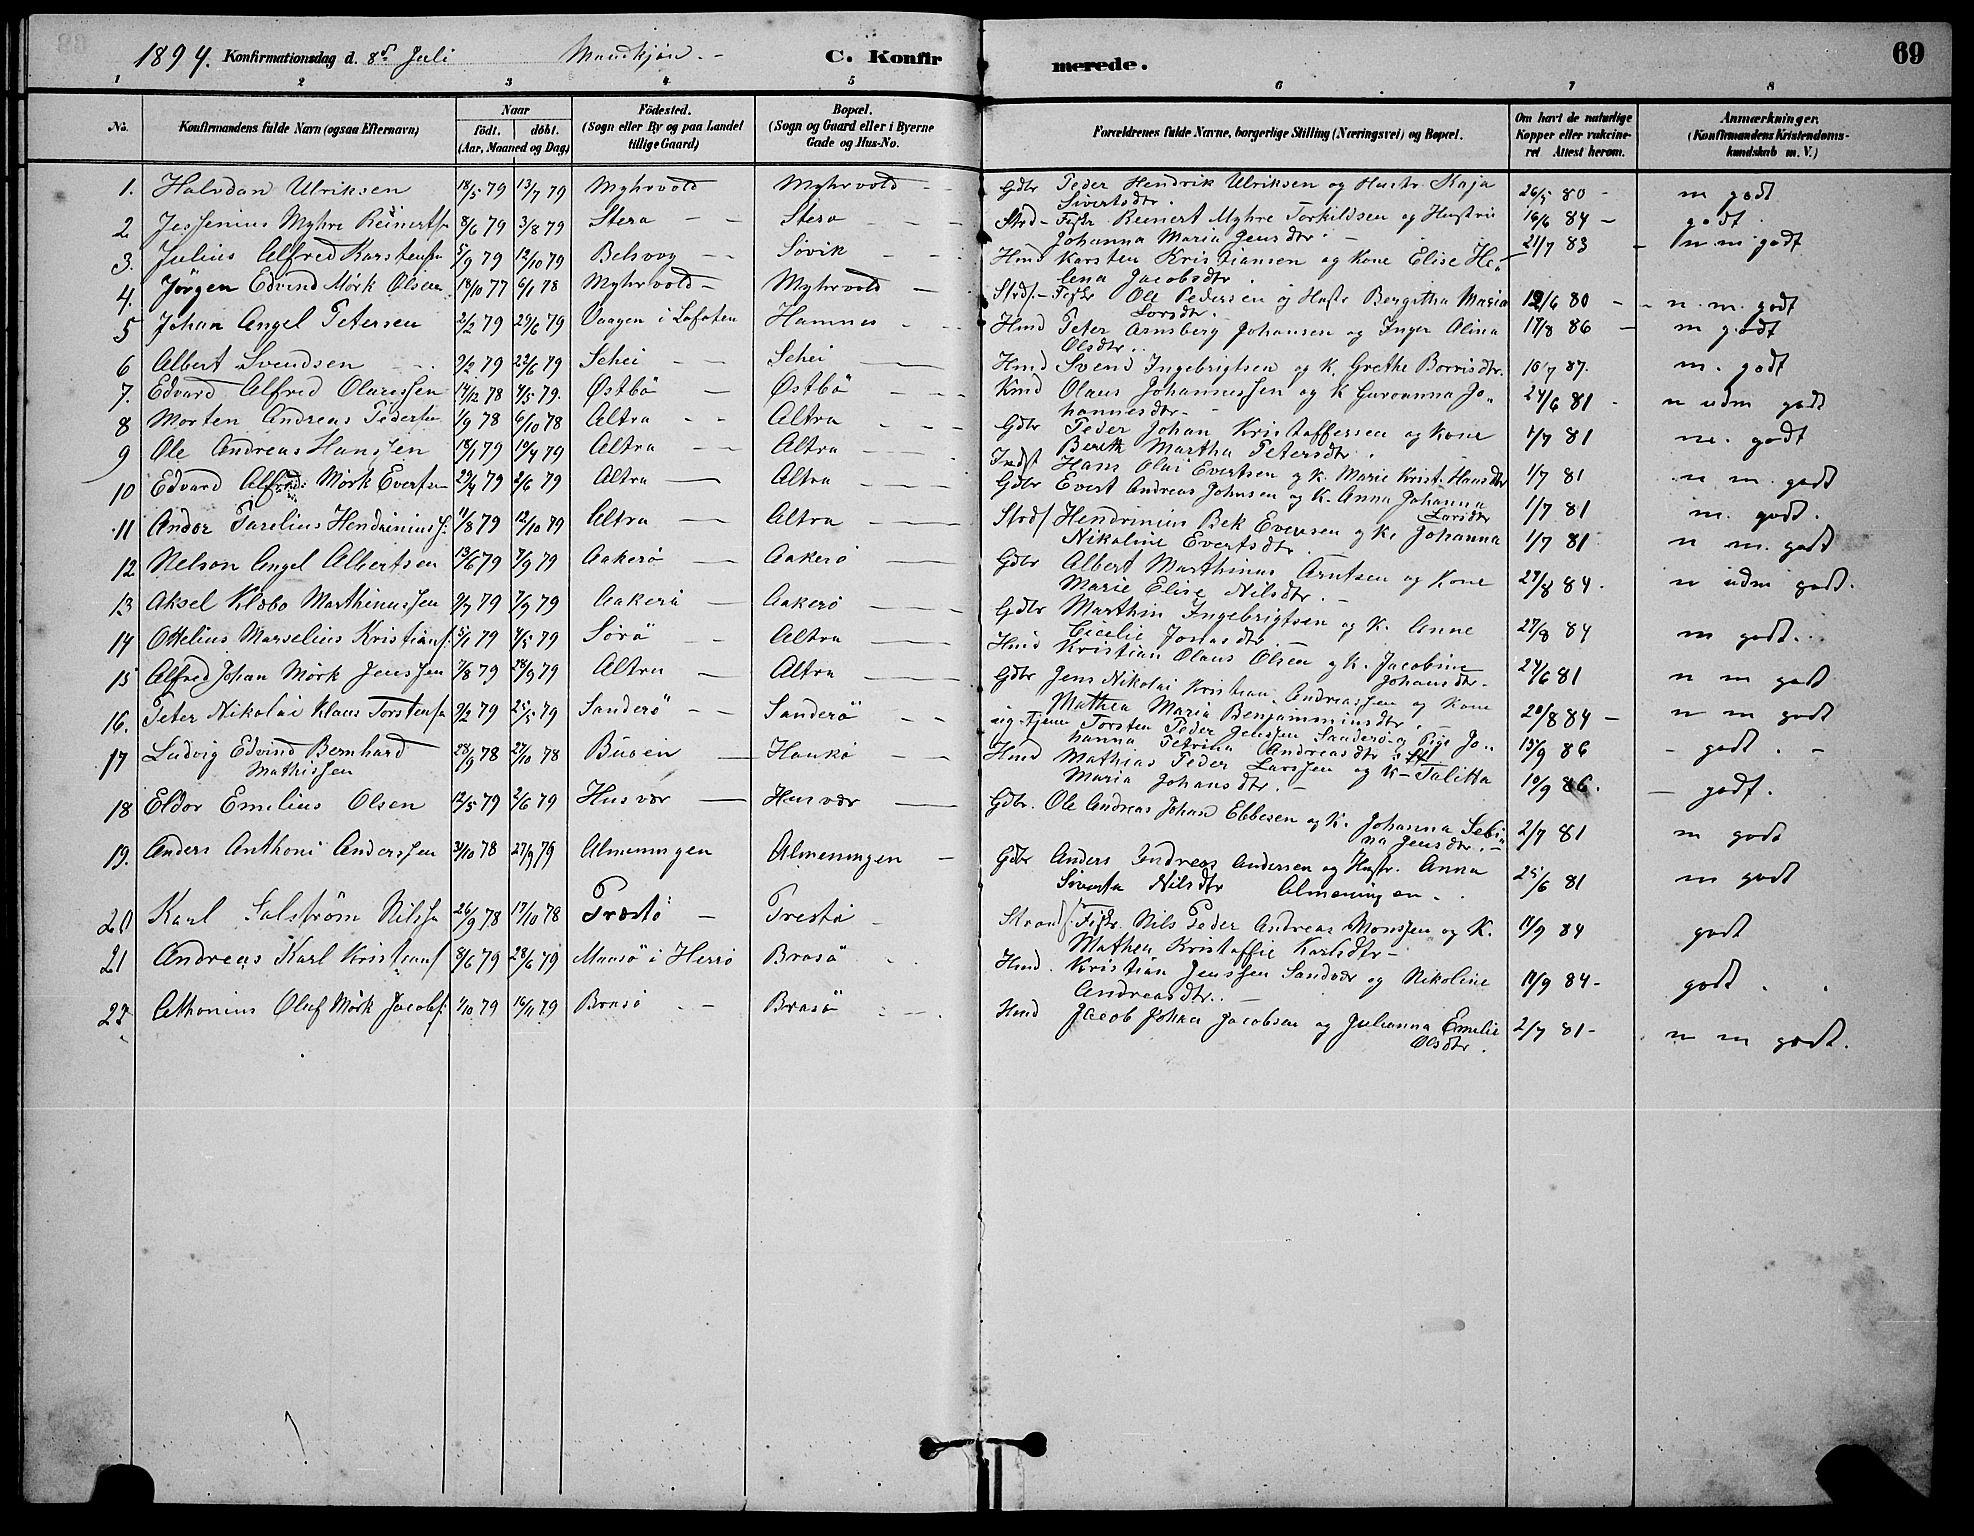 1894. Konfirmationsdag d. 8de Juli Mandkjøn. C. Konfirmerede. 69
1 2 3 4 5 6 7 8
No. Konfirmandens fulde Navn (ogsaa Efternavn) Naar födt. döbt. (Aar, Maaned og Dag) Födested. (Sogn eller By og paa Landet tillige Gaard) Bopæl. (Sogn og Gaard eller i Byerne Gade og Hus-No. Forældrenes fulde Navne, borgerlige Stilling (Næringsvei) og Bopæl. Om havt de naturlige Kopper eller vakcineret Attest herom. Anmærkninger. (Konfirmandens Kristendomskundskab m. V.)
1. Halvdan Ulriksen 18/5 79 13/7 79 Myhrvold Myhrvold Gdbr Peder Hendrik Ulriksen og Hustr. Kaja Sivertsdtr. 26/5 80 m godt
2 Jessenius Myhre Reinertsn 8/6 79 3/8 79 Stera Stera Strd-Fiskr Reinert Myhre Torkildsen og Hustru Johanna Maria Jensdtr. 16/6 84 godt.
3. Julius Alfred Karstensn 5/9 79 12/10 79 Belsvog Søvik Hmd Karsten Kristiansen og Kone Elise Helena Jacobsdtr. 21/7 83 n m godt
4. Jörgen Edvind Mörk Olsen 18/10 77 6/1 78 Myhrvold Myhrvold Strds.-Fiskr Ole Pedersen og Hustr Bergitha Maria Larsdtr. 12/6 80 n. m. godt
5 Johan Angel Petersen 2/2 79 29/6 79 Vaagen i Lofoten Hamnes Hmd Peter Arnsberg Johansen og Inger Alina Olsdtr. 17/8 86 m godt
6 Albert Svendsen 9/2 79 22/6 79 Schei Schei Hmd Svend Ingebrigtsen og K. Grethe Borrisdtr. 10/7 87. m. godt
7. Edvard Alfred Olaussen 14/12 78 4/5 79. Østbö Østbö Kmd Olaus Johannessen og K Guroanna Johannesdtr. 24/6 81 n udm godt
8 Morten Andreas Pedersen 1/9 78 6/10 78 Altra Altra Gdbr Peder Johan Kristoffersen og Kone Berit Martha Petersdtr. 1/7 81 m. godt
9 Ole Andreas Hanssen 18/1 79 10/4 79 Altra Altra Indst Hans Olai Evertsen og K. Marie Krist. Hansdtr 1/7 81 n m. godt
10 Edvard Alfred Mörk Evertsn 29/4 79 2/6 79 Altra Altra Gdbr Evert Andreas Johnsen og K. Anna Johanna Larsdtr 1/7 81 m. godt.
11 Andor Parelius Hendriniuss. 11/8 79 12/10 79 Altra Altra Strds Hendrinius Bek Evensen og K. Johanna Nikoline Evertsdtr. 1/7 81 n m. godt
12 Nelson Angel Albertsen 13/6 79 7/9 79 Aakerö Aakerö Gdbr Albert Marthinus Arntsen og Kone Marie Elise Nilsdtr. 27/8 84. n udm godt.
13 Aksel Klæbo Marthinussen 2/7 79 7/9 79 Aakerö Aakerö Gdbr Marthin Ingebrigtsen og K. Anne Cicelie Jonasdtr. 27/8 84 m godt.
14 Ottelius Marselius Kristians. 5/1 79 4/5 79 Sörö Altra Hmd Kristian Olaus Olsen og K. Jacobine Johansdtr. 24/6 81 n m godt
15 Alfred Johan Mörk Jenssen 7/8 79 28/9 79 Altra Altra Gdbr Jens Nikolai Kristian Andreassen og Kone Mathea Maria Benjaminsdtr. 20/8 84 n m godt
16. Peter Nikolai Klaus Torstensn 9/2 79 25/5 79 Sanderö Sanderö ug. Tjener Torsten Peder Jenssen Sanderö og Pige Johanna Petrina Andreasdtr. 13/9 86 godt.
17 Ludvig Edvind Bernhard Mathissen 28/9 78 27/10 78 Buöen Haukö Hmd Mathias Peder Larssen og K Talitta Maria Johansdtr. 10/9 86. godt.
18 Eldor Emilius Olsen 12/5 79 2/6 79 Husvær Husvær Gdbr. Ole Andreas Johan Ebbesen og K. Johanna Sebina Jensdtr. 2/7 81 m godt
19. Anders Anthoni Anderssen 3/10 78 27/9 79 Almenningen Almeningen Gdbr Anders Andreas Andersen og Hustr. Anna Siverta Nilsdtr Almeningen. 25/6 81 m godt
20 Karl Salström Nilssn 26/9 78 17/10 78 Træstö Trestö Strands. Fiskr. Nils Peder Andreas Monssen og K. Mathea Kristoffie Karlsdtr 11/9 84 godt
21 Andreas Karl Kristians 8/6 79 28/6 79 Maasö i Herrö Brasö Hmd. Kristian Jenssen Sandvær og Nikoline Andreasdtr. 11/9 84 godt.
22 Athonius Oluf Mörk Jacobs. 1/10 79 16/11 79 Brasö Brasö Hmd Jacob Johan Jacobsen og Julianna Emelie Olsdtr. 2/7 81 n m godt.